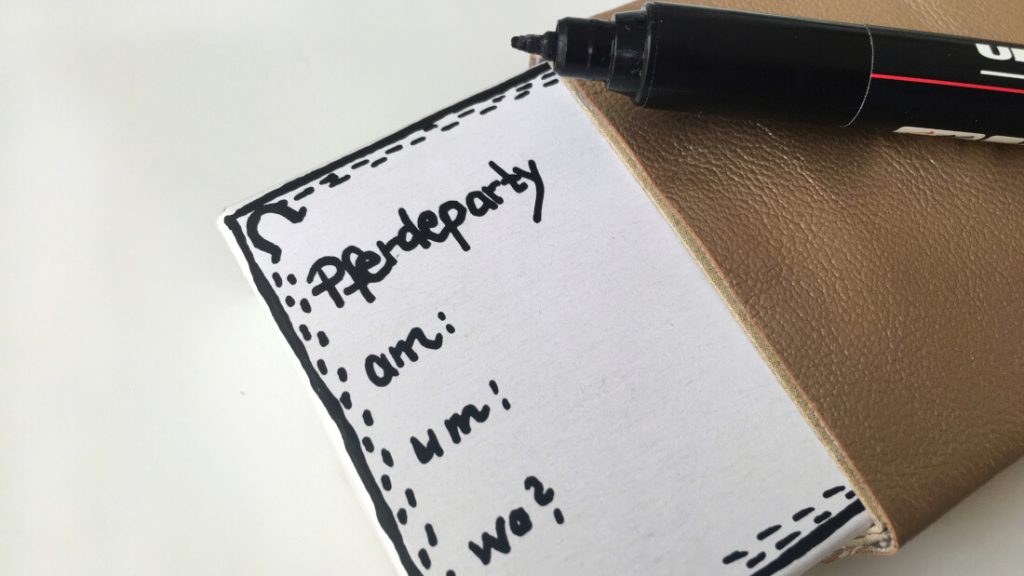 Pferdeparty
am:
um:
wo?